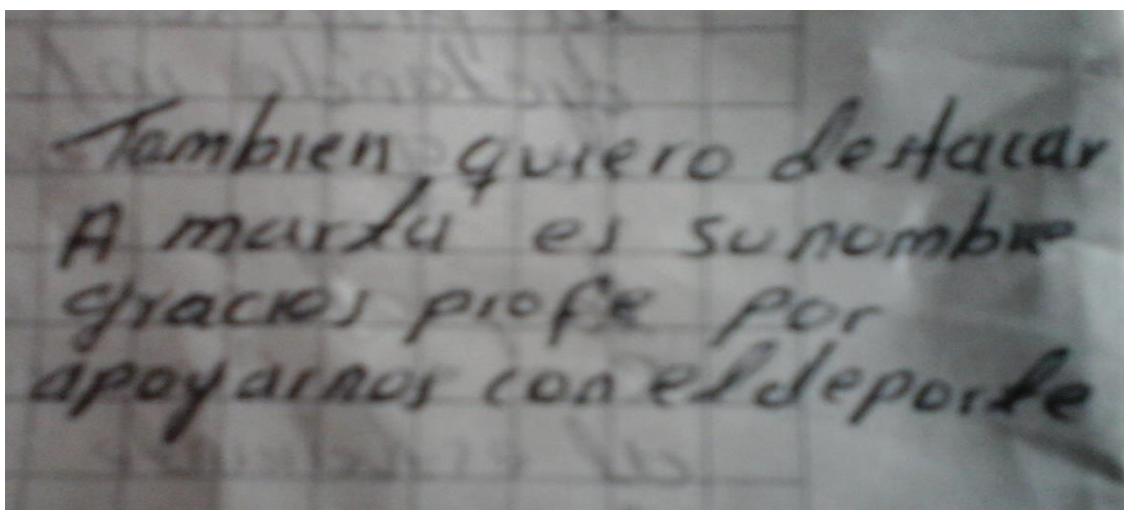 Tambien quiero destacar
A marta es su nombre
gracias profe por
apoyarnos con el deporte